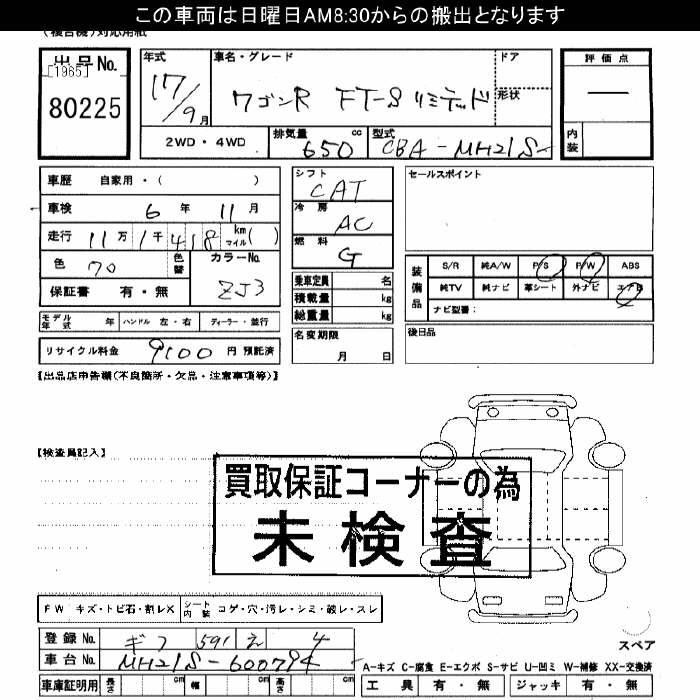 この車両は日曜日AM8:30からの搬出となります
(複合機)対応用紙
出品No.
[1965]
80225
年式
17/9月
車名・グレード
ワゴンR FT-S リミテッド
ドア
形状
評価点
内装
2WD・4WD
排気量 650 cc
型式 CBA-MH21S
車歴 自家用・( )
車検 6年 11月
走行 11万 1千 418 km マイル( )
色 70
色替
カラーNo. ZJ3
保証書 有・無
シフト CAT
冷房 AC
燃料 G
セールスポイント
乗車定員 名
積載量 kg
総重量 kg
装備品
S/R 純A/W P/S P/W ABS
純TV 純ナビ 革シート 外ナビ エアB
ナビ型番:
モデル年式 年 ハンドル 左・右 ディーラー・並行
名変期限 月 日
後日品
リサイクル料金 9100 円 預託済
【出品店申告欄(不良箇所・欠品・注意事項等)】
【検査員記入】
買取保証コーナーの為
未検査
FW キズ・トビ石・割レX
シート内装 コゲ・穴・汚レ・シミ・破レ・スレ
登録No. ギフ 591 え 4
車台No. MH21S-600794
スペア
A-キズ C-腐食 E-エクボ S-サビ U-凹ミ W-補修 XX-交換済
車庫証明用 長さ cm 幅 cm 高さ cm
工具 有・無
ジャッキ 有・無